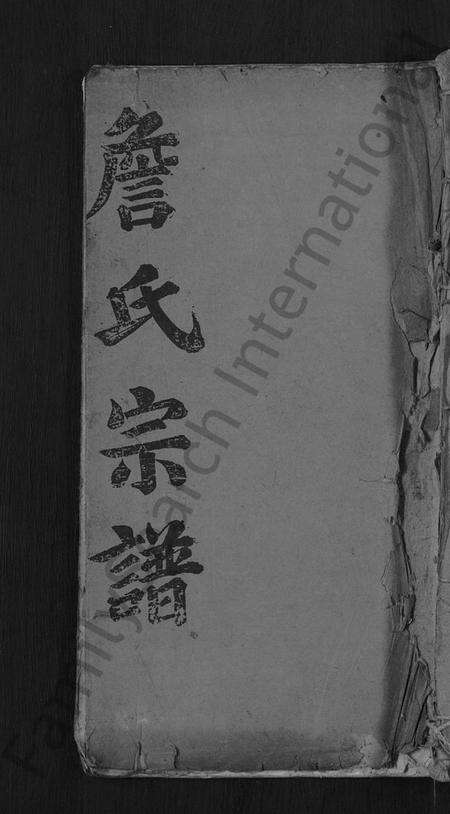 詹氏宗譜
FamilySearch International